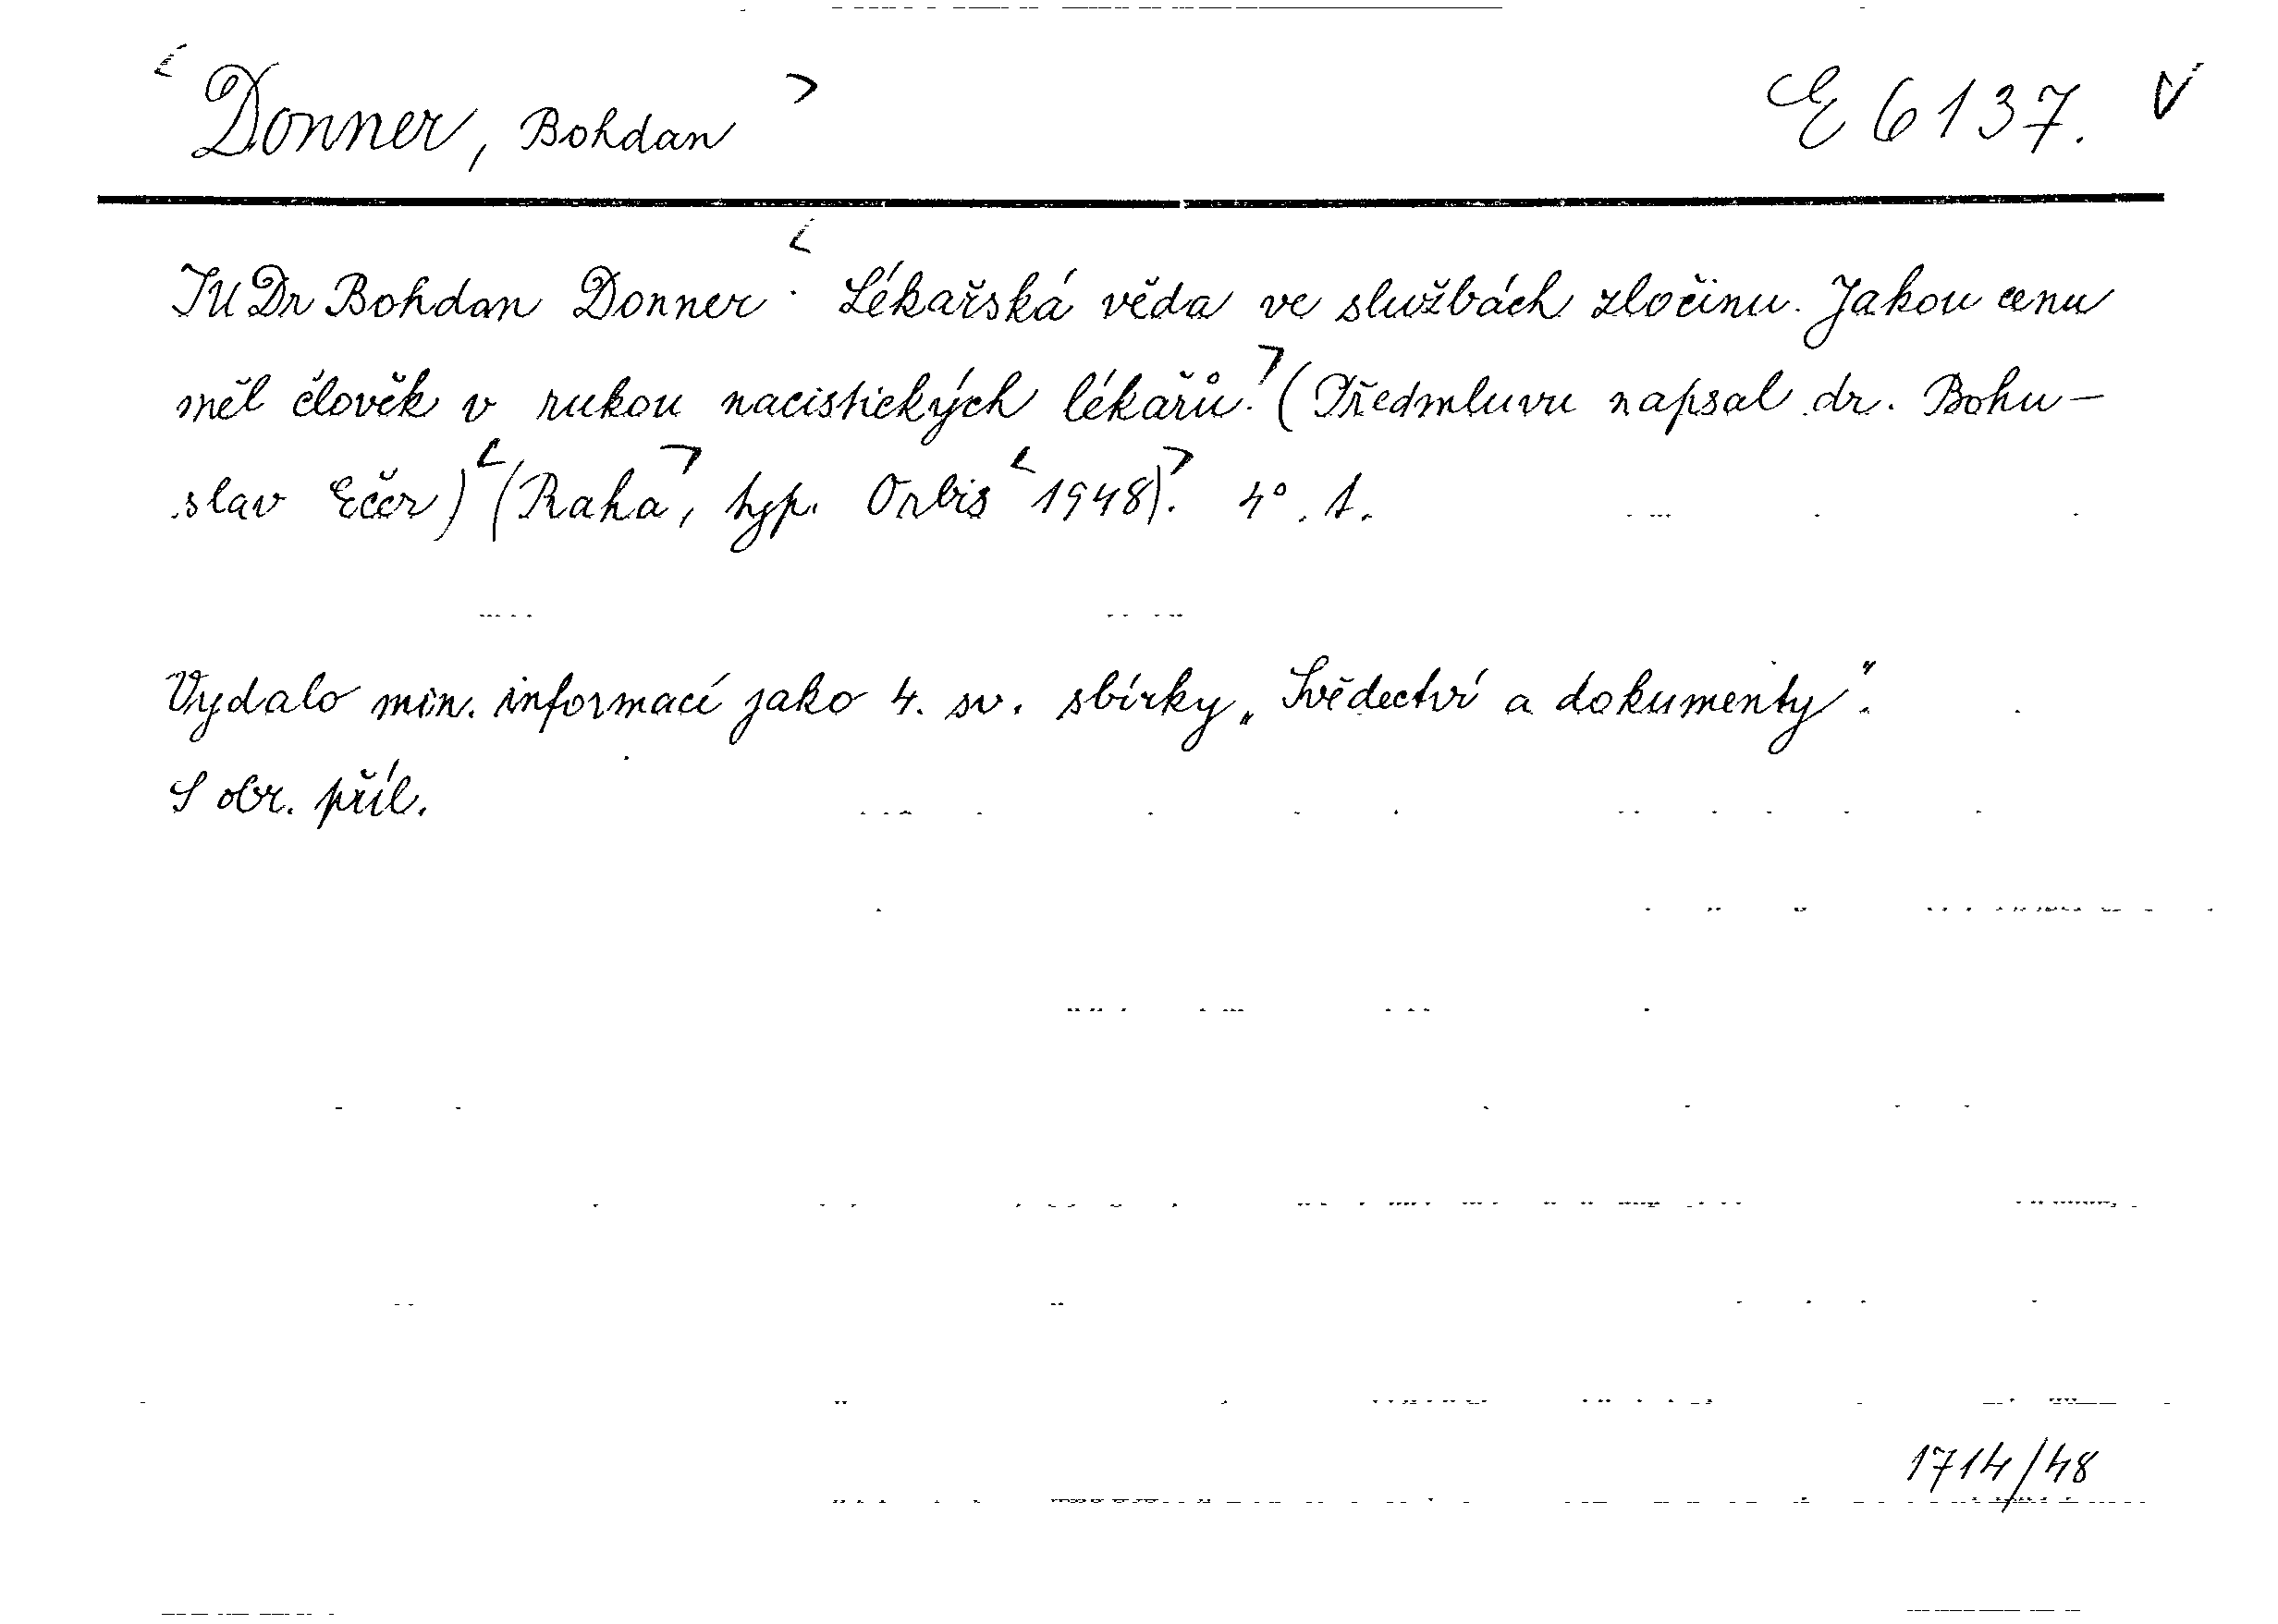 Donner, Bohdan E 6137.
JUDr Bohdan Donner: Lékařská věda ve službách zločinu. Jakou cenu
měl člověk v rukou nacistických lékařů. (Předmluvu napsal dr. Bohu-
slav Ečer) (Praha, typ. Orbis 1948). 4°. 1.
Vydalo min. informací jako 4. sv. sbírky „Svědectví a dokumenty".
S obr. příl.
1714/48